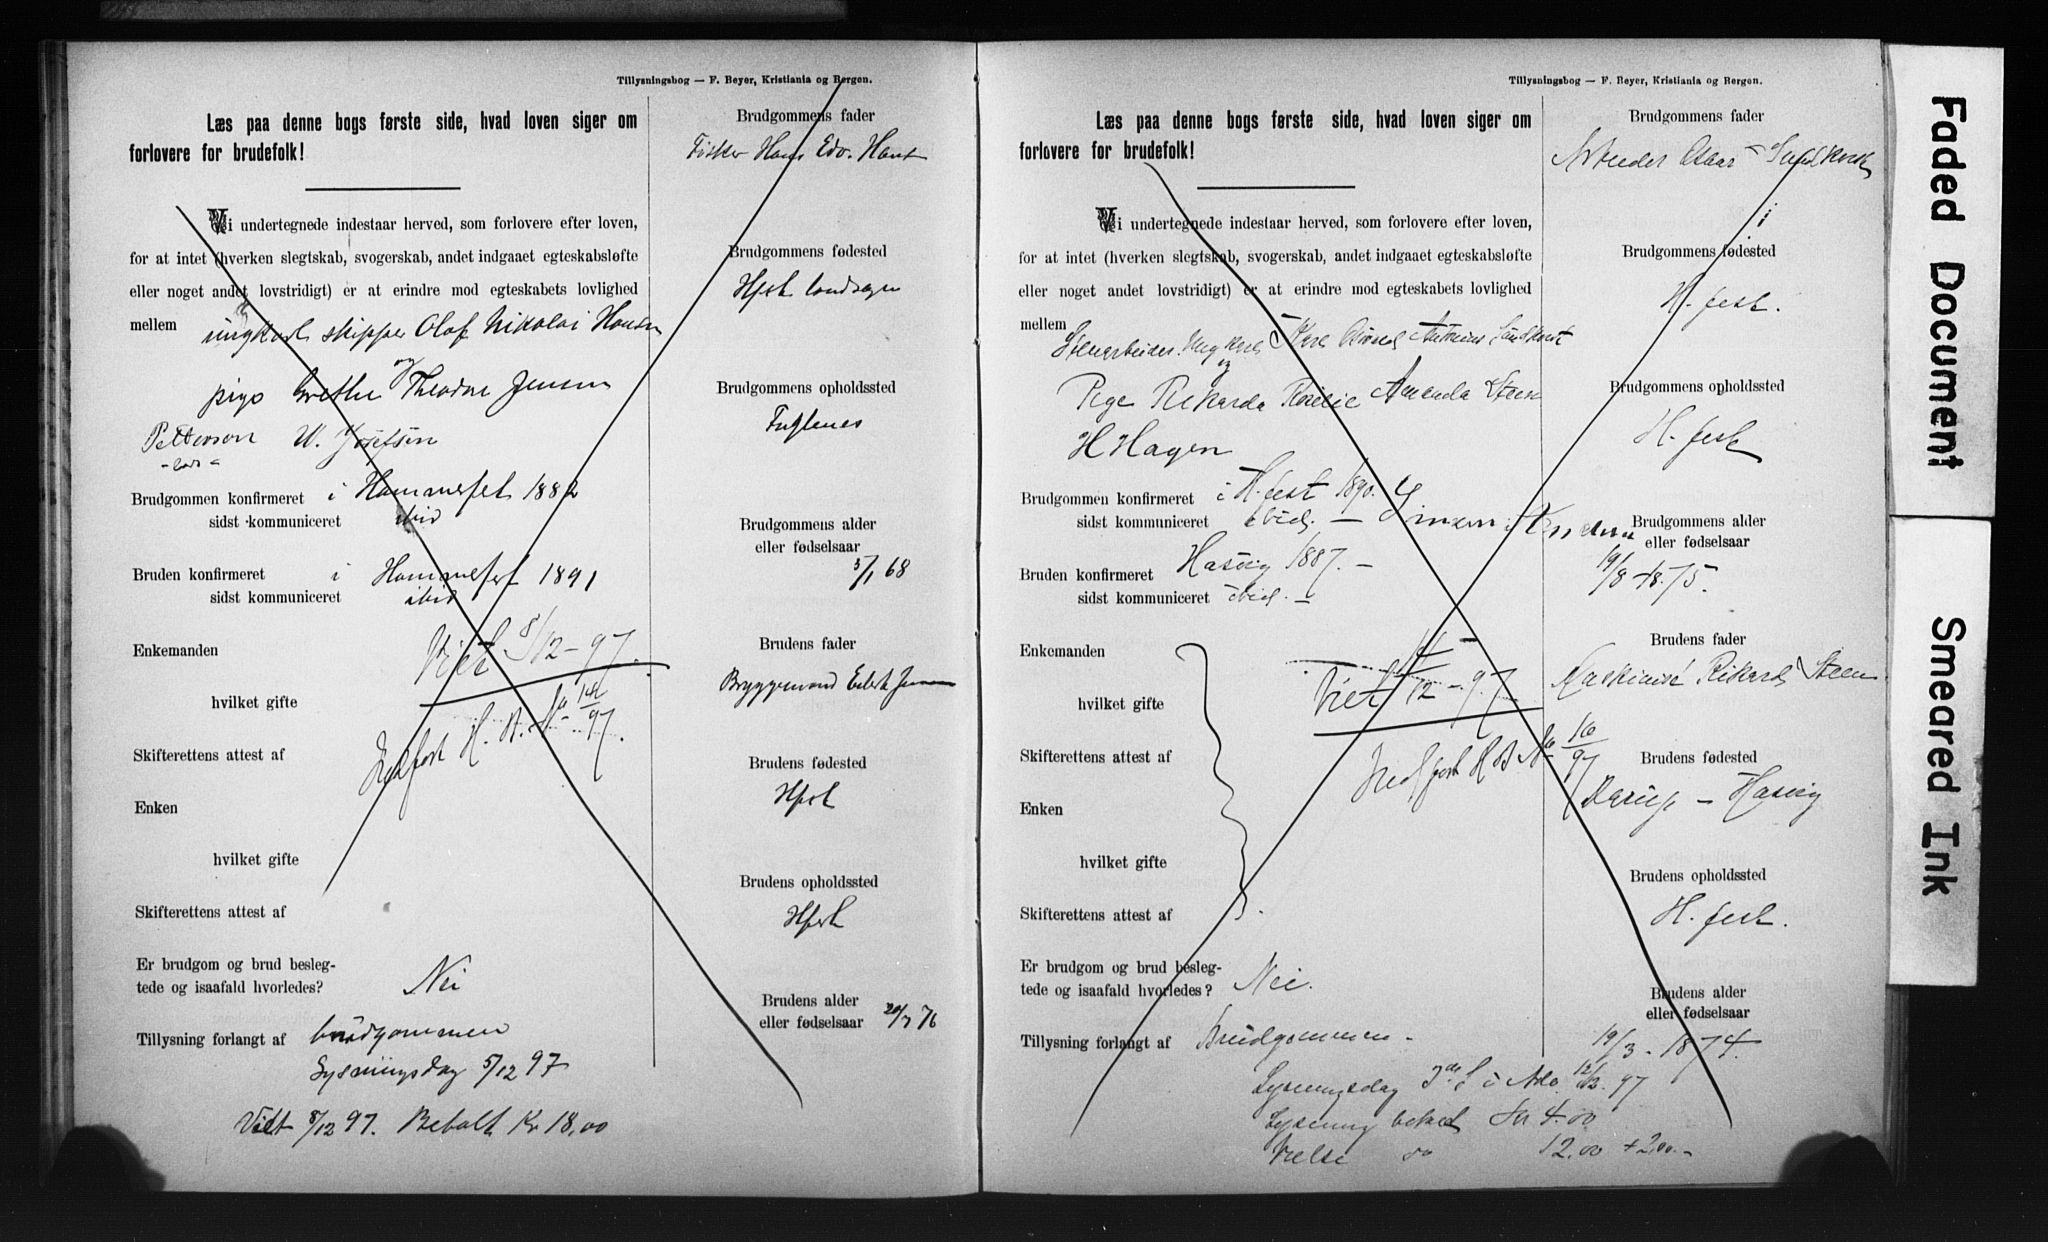 Tillysningsbog — F. Beyer, Kristiania og Bergen.
Læs paa denne bogs første side, hvad loven siger om
forlovere for brudefolk!
Vi undertegnede indestaar herved, som forlovere efter loven,
for at intet (hverken slegtskab, svogerskab, andet indgaaet egteskabsløfte
eller noget andet lovstridigt) er at erindre mod egteskabets lovlighed
mellem ungkarl skipper Olaf Nikolai Hansen
og
pige Grethe Theodora Jensen
Petterson W. Josefsen
Brudgommen konfirmeret i Hammerfest 1882
sidst kommuniceret ibid
Bruden konfirmeret i Hammerfest 1891
sidst kommuniceret ibid
Enkemanden
Viet 8/12 - 97.
hvilket gifte
Indført H. B. No 14/97.
Skifterettens attest af
Enken
hvilket gifte
Skifterettens attest af
Er brudgom og brud besleg-
tede og isaafald hvorledes? Nei
Tillysning forlangt af brudgommen
Lysningsdag 5/12 97
Viet 8/12 97. Betalt Kr 18,00
Brudgommens fader
Fisker Hans Edv. Hans
Brudgommens fødested
Hfest landsogn
Brudgommens opholdssted
Fuglenes
Brudgommens alder
eller fødselsaar
5/1 68
Brudens fader
Bryggemand Jensen
Brudens fødested
Hfest
Brudens opholdssted
Hfest
Brudens alder
eller fødselsaar 20/7 76
Tillysningsbog — F. Beyer, Kristiania og Bergen.
Læs paa denne bogs første side, hvad loven siger om
forlovere for brudefolk!
Vi undertegnede indestaar herved, som forlovere efter loven,
for at intet (hverken slegtskab, svogerskab, andet indgaaet egteskabsløfte
eller noget andet lovstridigt) er at erindre mod egteskabets lovlighed
mellem
Stenarbeider. Ungkarl Antonius
og
Pige Rikarda Amanda Steen
H Hagen
Brudgommen konfirmeret i H.fest 1890.
sidst kommuniceret ibid. —
Bruden konfirmeret Hasvig 1887. —
sidst kommuniceret ibid. —
Enkemanden
hvilket gifte
Viet 12 - 97
Skifterettens attest af
Indført H B No 16/97
Enken
hvilket gifte
Skifterettens attest af
Er brudgom og brud besleg-
tede og isaafald hvorledes? Nei.
Tillysning forlangt af Brudgommen.
Lysningsdag 3de S i Adv 12/12. 97
Lysning betalt Kr 4.00
Vielse do 12.00 + 2.00. -
Brudgommens fader
Arbeider
i
Brudgommens fødested
H. fest.
Brudgommens opholdssted
H. fest
Brudgommens alder
eller fødselsaar
19/8 1875.
Brudens fader
Rikard Steen
Brudens fødested
Hasvig
Brudens opholdssted
H. fest.
Brudens alder
eller fødselsaar
19/3 - 1874.
Faded Document
Smeared Ink